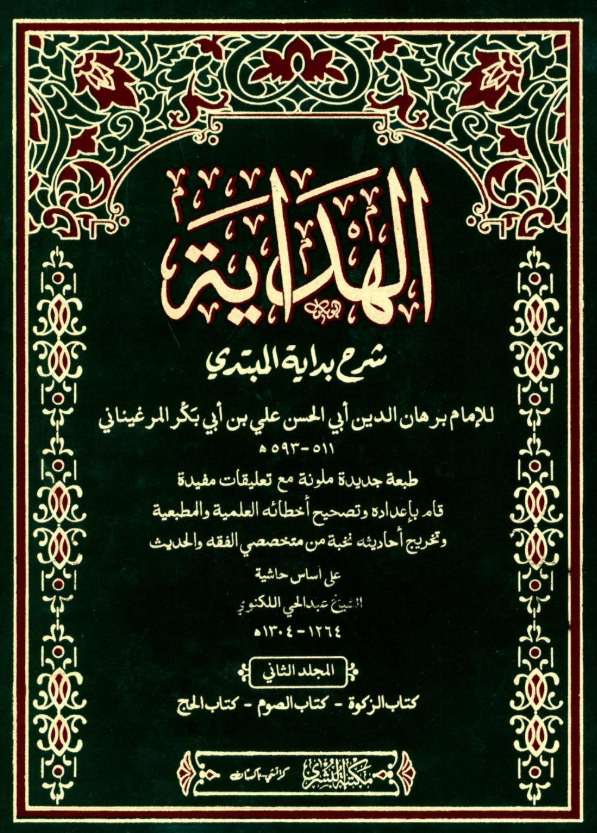 الهداية
شرح بداية المبتدي
للإمام برهان الدين أبي الحسن علي بن أبي بَكْر المرغيناني
٥١١-٥٩٣ ه
طبعة جديدة ملونة مع تعليقات مفيدة
قام بإعداده وتصحيح أخطائه العلمية والمطبعية
وتخريج أحاديثه نخبة من متخصصي الفقه والحديث
على أساس حاشية
الشيخ عبدالحي اللكنوي
١٢٦٤-١٣٠٤ه
المجلد الثاني
كتاب الزكوة - كتاب الصوم - كتاب الحج
مكتبة البشرى
كراتشي-باكستان